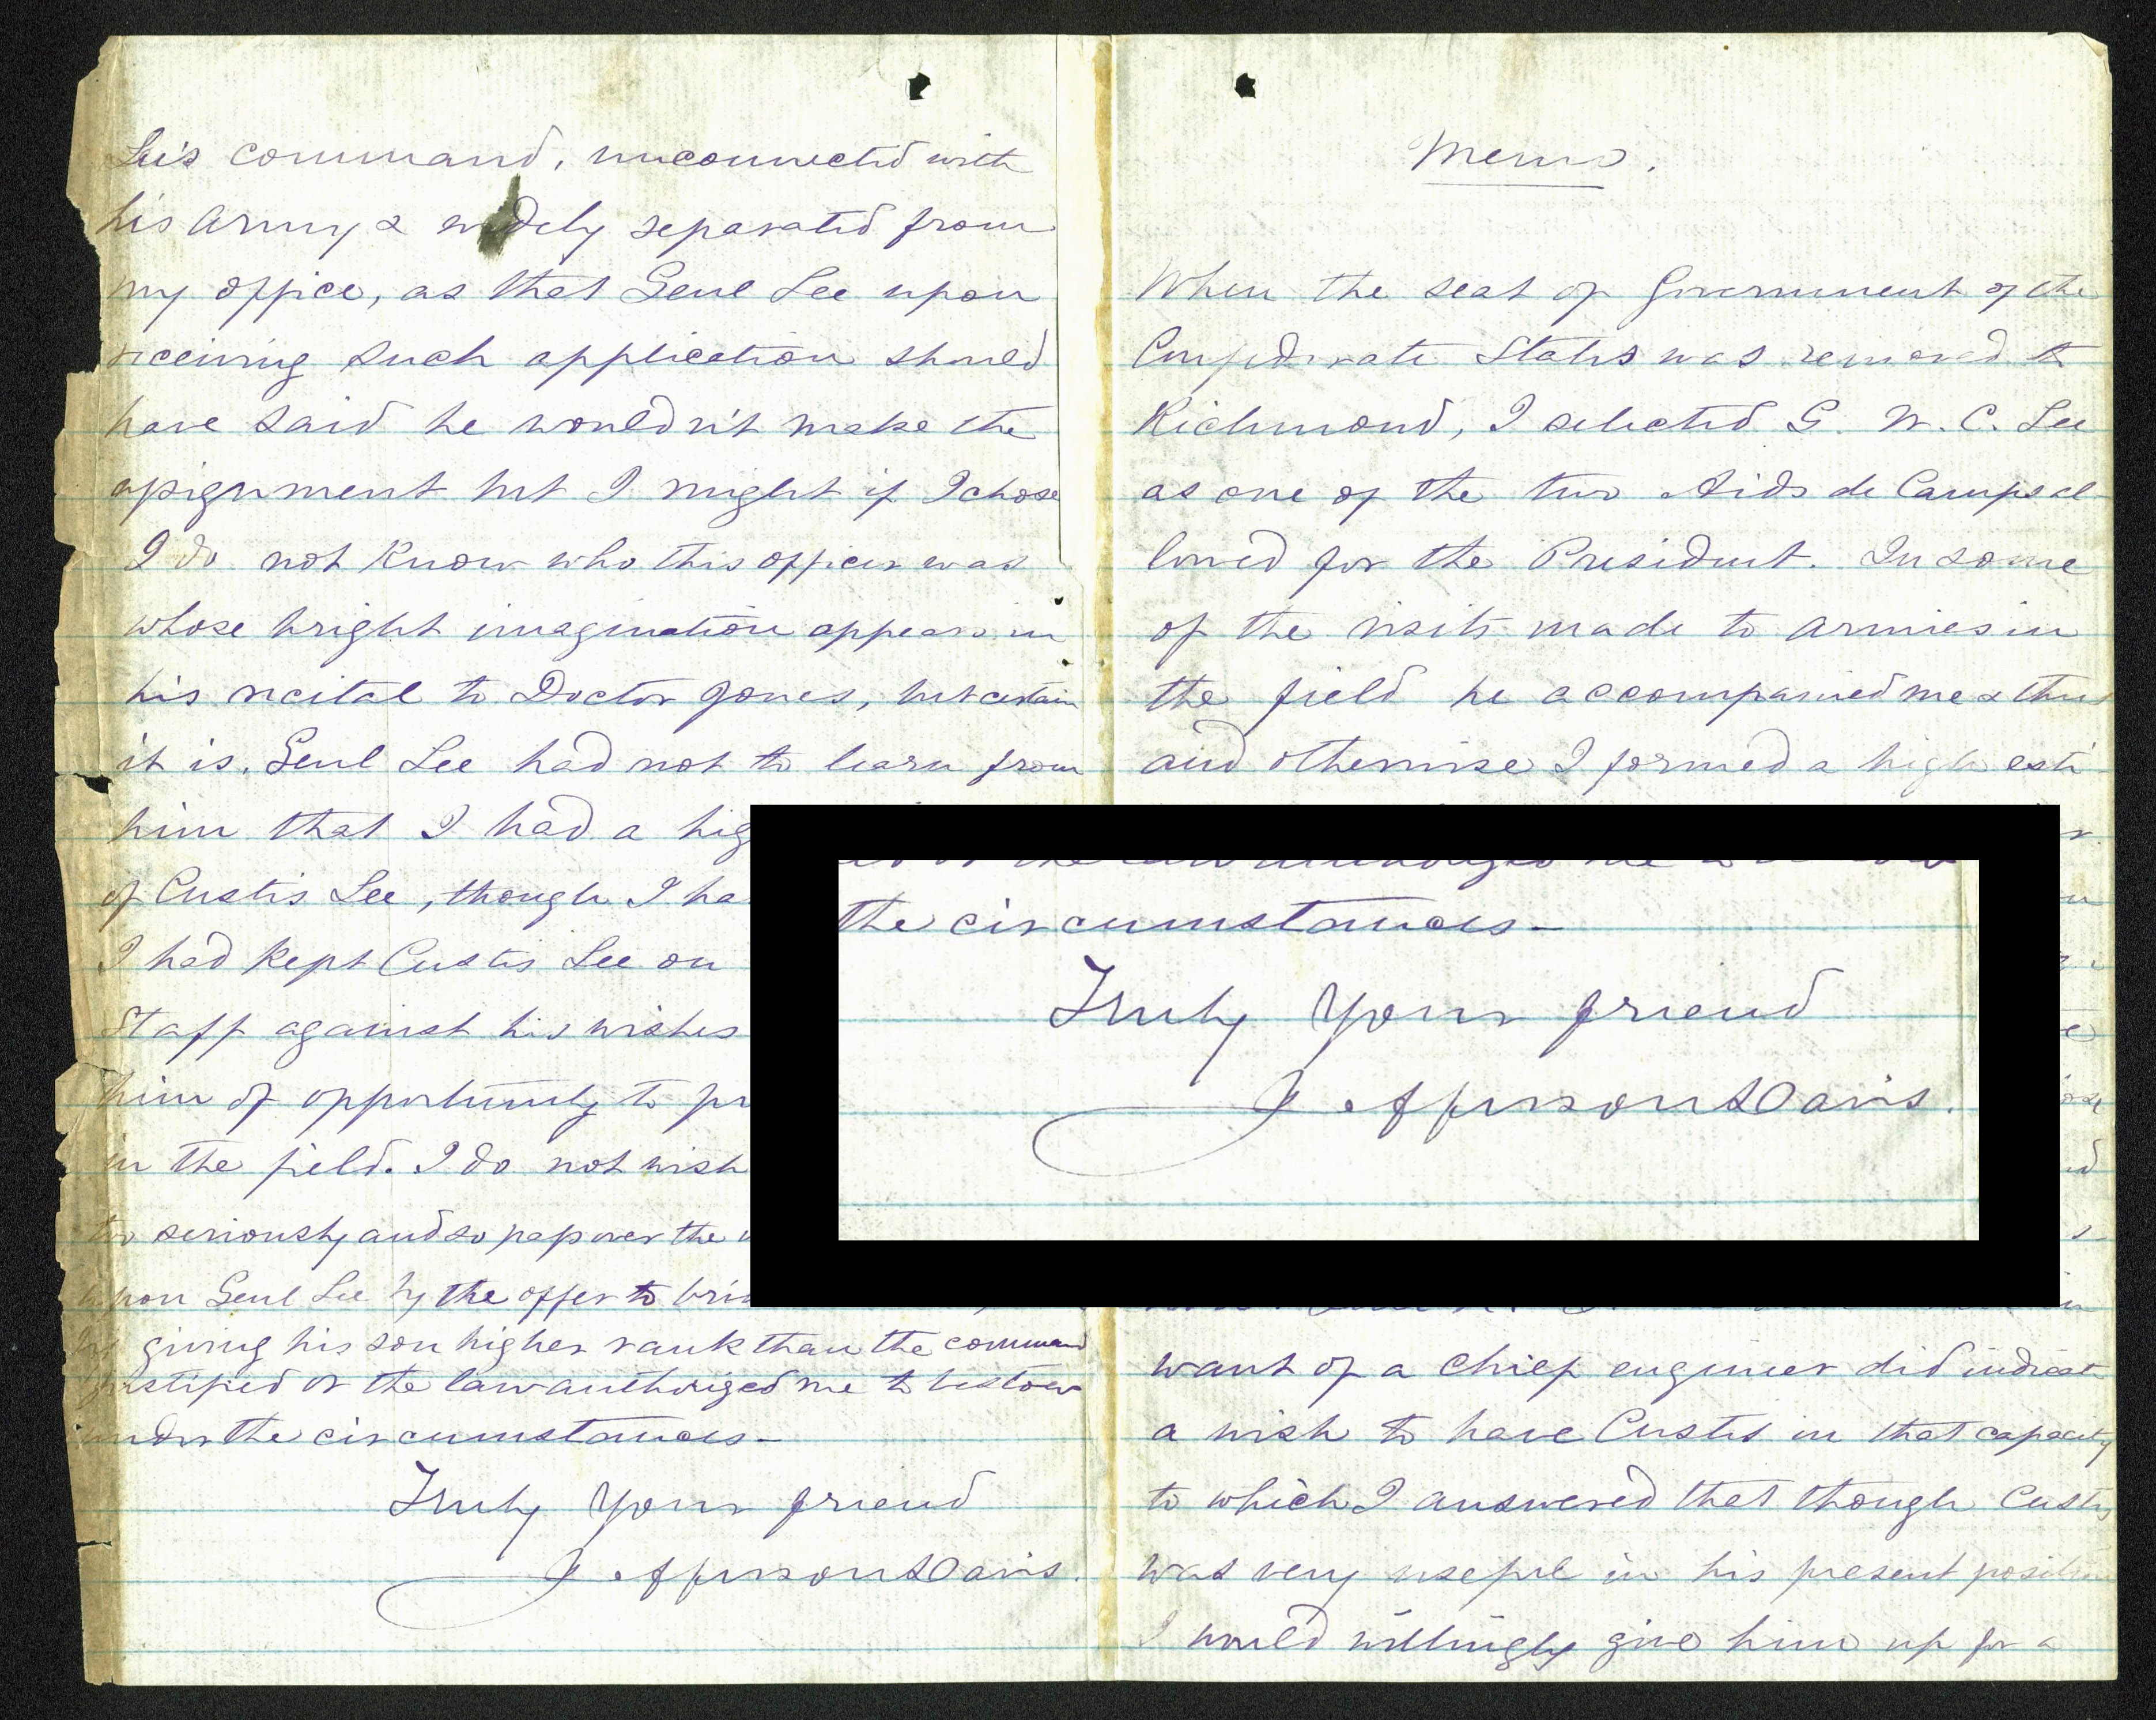 Lee's command, unconnected with
his Army & widely separated from
my office, as that Genl Lee upon
receiving such application should
have said he wouldn't make the
assignment but I might if I chose
I do not know who this officer was
whose bright imagination appears in
his recital to Doctor Jones, but certain
it is. Genl Lee had not to learn from
him that I had a hig
of Custis Lee, though I ha
I had kept Custis Lee on
Staff against his wishes
him of opportunity to pr
in the field. I do not wish
too seriously and so pass over the
upon Genl Lee by the offer to bri
by giving his son higher rank than the command
justified or the law authorized me to bestow
under the circumstances—
Truly your friend
Jefferson Davis.
Memo.
When the seat of Government of the
Confederate States was removed to
Richmond, I selected G. W. C. Lee
as one of the two Aids de Camps al-
lowed for the President. In some
of the visits made to armies in
the field he accompanied me & thus
and otherwise I formed a high esti-
want of a chief engineer did indicate
a wish to have Custis in that capacity
to which I answered that though Custis
was very useful in his present position
I would willingly give him up for a
the circumstances—
Truly your friend
Jefferson Davis.